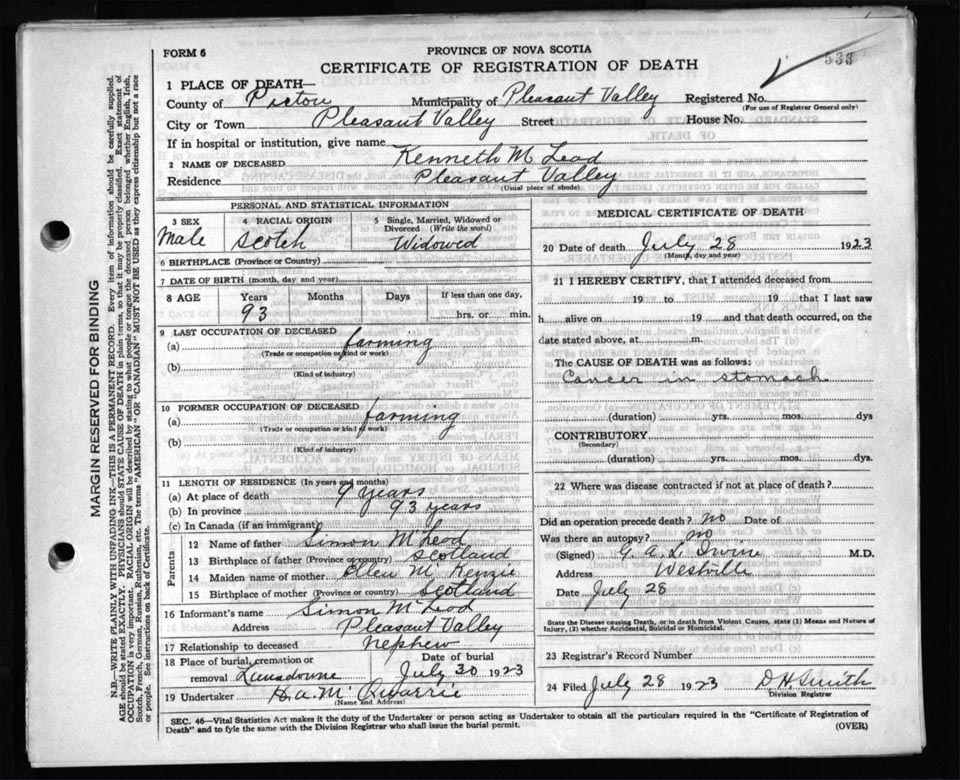 FORM 6
PROVINCE OF NOVA SCOTIA
533
CERTIFICATE OF REGISTRATION OF DEATH
1 PLACE OF DEATH—
County of Pictou Municipality of Pleasant Valley Registered No.
(For use of Registrar General only)
City or Town Pleasant Valley Street House No.
If in hospital or institution, give name
2 NAME OF DECEASED Kenneth McLeod
Residence Pleasant Valley
(Usual place of abode)
PERSONAL AND STATISTICAL INFORMATION
3 SEX 4 RACIAL ORIGIN 5 Single, Married, Widowed or
Divorced (Write the word)
Male Scotch Widowed
6 BIRTHPLACE (Province or Country)
7 DATE OF BIRTH (month, day and year)
8 AGE Years Months Days If less than one day,
93 hrs. or min.
9 LAST OCCUPATION OF DECEASED
(a) farming
(Trade or occupation or kind or work)
(b)
(Kind of industry)
10 FORMER OCCUPATION OF DECEASED
(a) farming
(Trade or occupation or kind of work)
(b)
(Kind of industry)
11 LENGTH OF RESIDENCE (In years and months)
(a) At place of death 9 years
(b) In province 93 years
(c) In Canada (if an immigrant)
Parents
12 Name of father Simon McLeod
13 Birthplace of father (Province or country) Scotland
14 Maiden name of mother Ellen McKenzie
15 Birthplace of mother (Province or country) Scotland
16 Informant's name Simon McLeod
Address Pleasant Valley
17 Relationship to deceased nephew
18 Place of burial, cremation or Date of burial
removal Lansdowne July 30 1923
19 Undertaker H. A. McQuarrie
(Name and Address)
MEDICAL CERTIFICATE OF DEATH
20 Date of death July 28 1923
(Month, day and year)
21 I HEREBY CERTIFY, that I attended deceased from
19 to 19 that I last saw
h alive on 19 and that death occurred, on the
date stated above, at m.
The CAUSE OF DEATH was as follows:
Cancer in stomach
(duration) yrs. mos. dys
CONTRIBUTORY
(Secondary)
(duration) yrs. mos. dys.
22 Where was disease contracted if not at place of death?
Did an operation precede death? no Date of
Was there an autopsy? no
(Signed) G. A. L. Irwin M.D.
Address Westville
Date July 28
State the Disease causing Death, or in death from Violent Causes, state (1) Means and Nature of
Injury, (2) whether Accidental, Suicidal or Homicidal.
23 Registrar's Record Number
24 Filed July 28 1923 D H Smith
Division Registrar
SEC. 46—Vital Statistics Act makes it the duty of the Undertaker or person acting as Undertaker to obtain all the particulars required in the "Certificate of Registration of
Death" and to fyle the same with the Division Registrar who shall issue the burial permit. (OVER)
MARGIN RESERVED FOR BINDING
N.B.—WRITE PLAINLY WITH UNFADING INK—THIS IS A PERMANENT RECORD. Every item of information should be carefully supplied.
AGE should be stated EXACTLY. PHYSICIANS should STATE CAUSE OF DEATH in plain terms, so that it may be properly classified. Exact statement of
OCCUPATION is very important. RACIAL ORIGIN will be described by stating to what people or tongue the deceased person belonged, whether English, Irish,
Scotch, French, German, Russian, Ruthenian, etc. The terms "AMERICAN" OR "CANADIAN" MUST NOT BE USED as they express citizenship but not a race
or people. See instructions on back of Certificate.